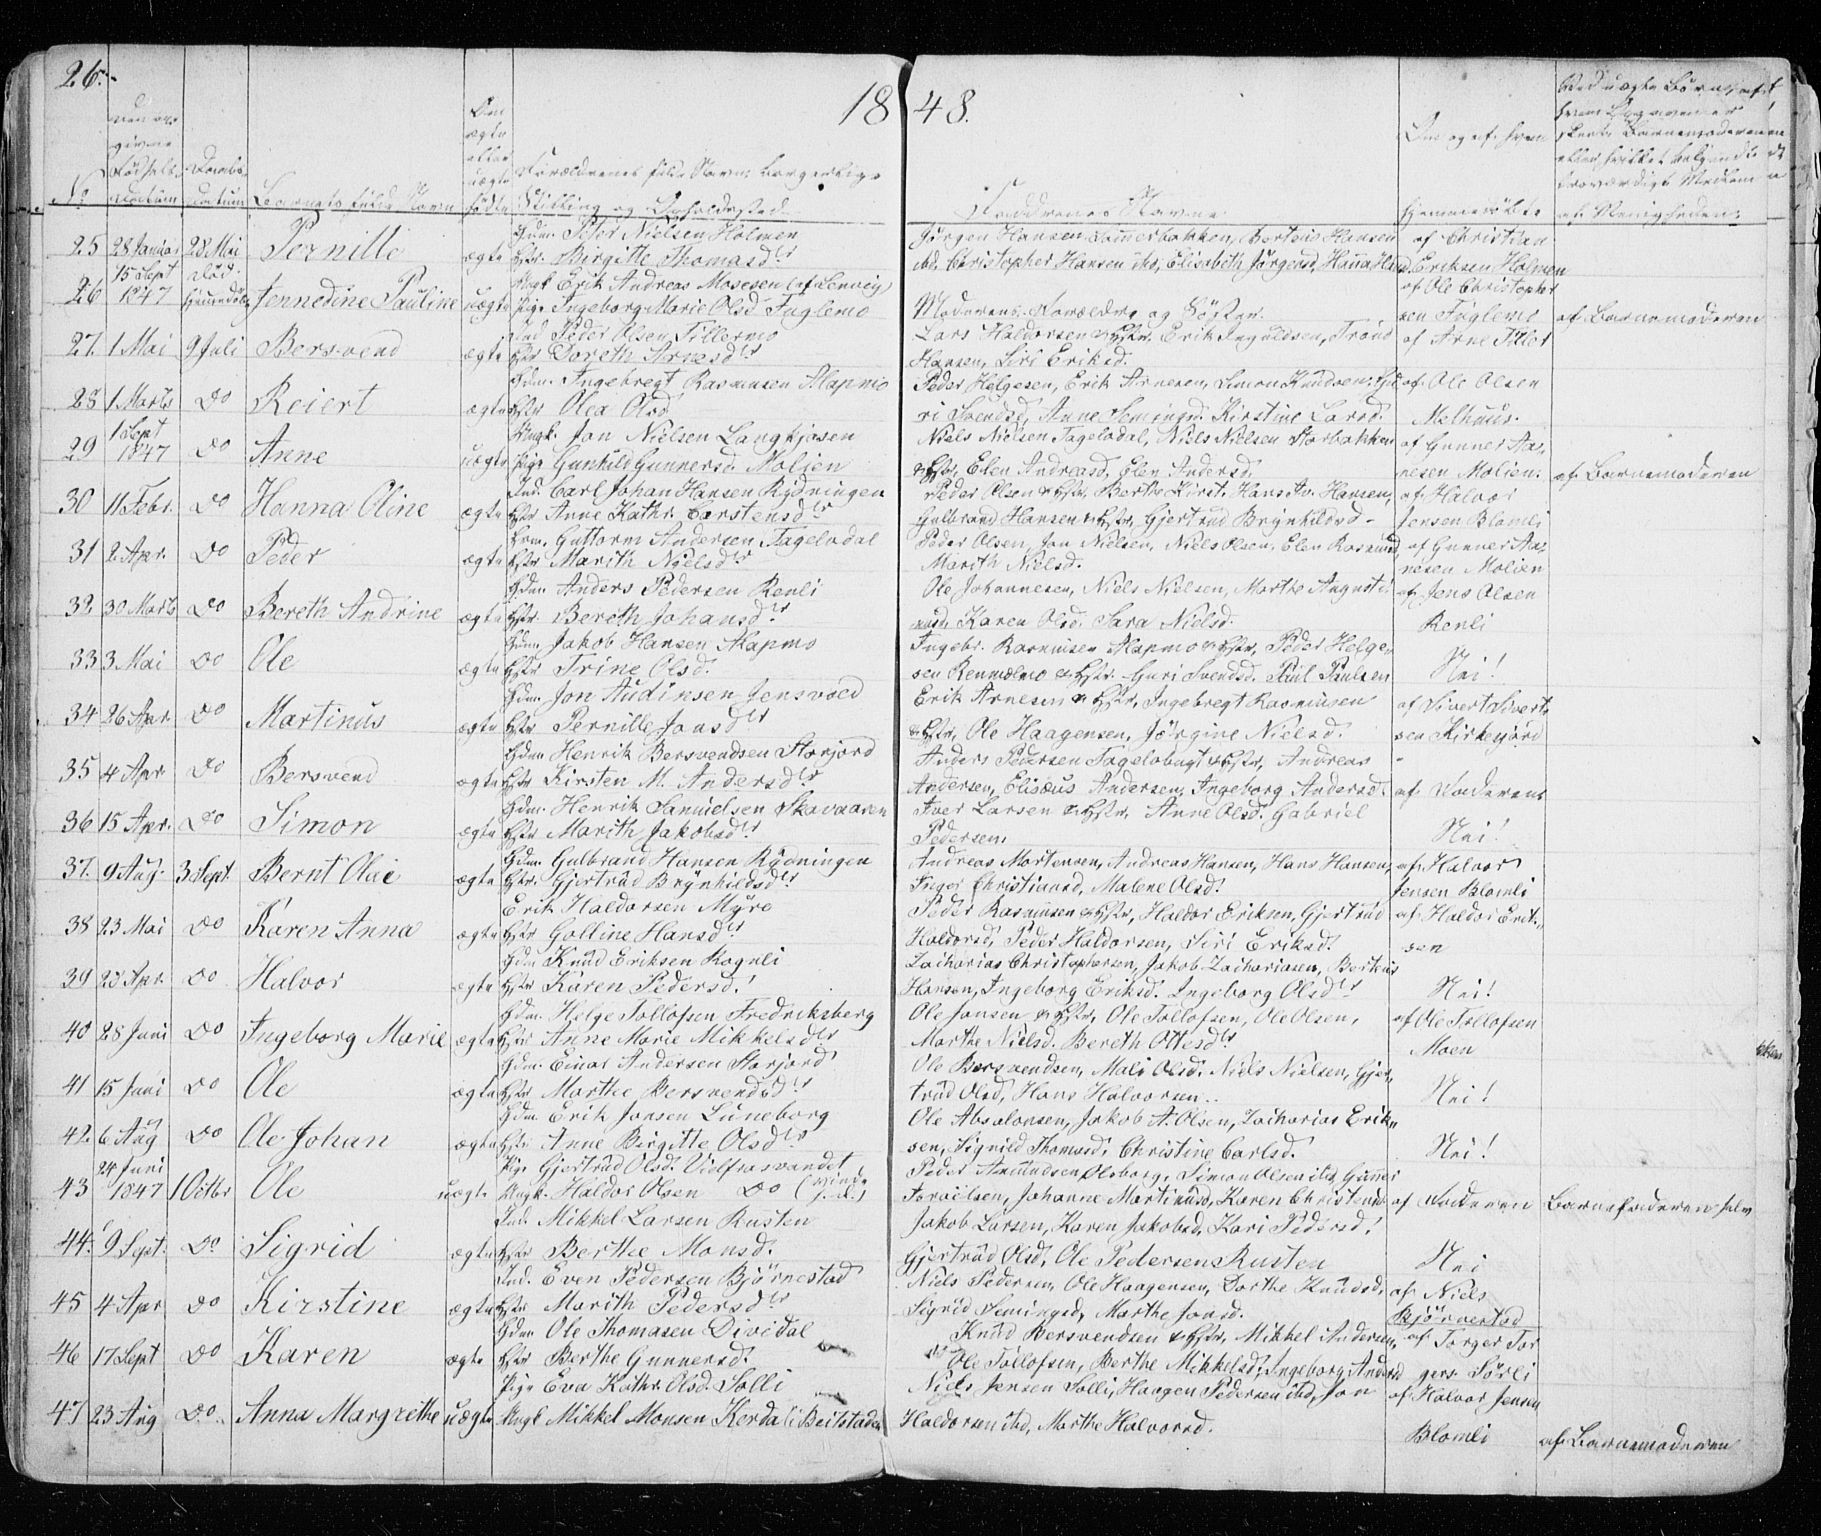 26.
1848.
No
Den an-
givne
Fødsels-
datum
Daabs-
datum
Barnets fulde Navn
Om
ægte
eller
uægte
født
Forældrenes fulde Navn, borgerlige
Stilling og Opholdssted
Faddrenes Navne
Om og af hvem
hjemmedøbt
25 28 Januar 28 Mai Pernille ægte
Gdm. Peder Nielsen Holmen
Hstr. Birgitte Thomasdtr
Jørgen Hansen Sommerbakken, Berteus Hansen
ibd, Christopher Hansen ibd, Elisabeth Jørgensd, Hanna
af Christian
Eriksen Holmen
26 15 Sept 1847 Jennedine Pauline uægte
Ungk Erik Andreas Mosesen (af Lenvig)
Pige Ingeborg Marie Olsd Fuglemo
Moderens Forældre og Søster.
af Ole Christopher
sen Fuglemo
af Barnemoderen
27. 1 Mai 9 Juli Bersvend ægte
Ind Peder Olsen Tillermo
Hstr Doreth Arnesdtr
Lars Haldorsen & Hstr, Erik Ingvaldsen, Trond
Hansen, Siri Eriksd.
af Arne Tiller
28 1 Marts Do Reiert ægte
Gdm. Ingebregt Rasmusen Alapmo
Hstr Olea Olsd
Peder Helgesen, Erik Arnesen, Simon Knudsen, Gu
ri Svendsd, Anne Semingsd. Kirstine Larsd.
af Ole Olsen
Melhuus.
29 1 Sept 1847 Do Anne uægte
Ungk. Jon Nielsen Langkjosen
Pige Gunhild Gunnersd. Molien
Niels Nielsen Fagelodal, Niels Nielsen Storbakken
& Hstr, Elen Andreasd. Elen Andersd.
af Gunner Aa-
nesen Molien.
af Barnemoderen
30 11 Febr. Do Hanna Oline ægte
Ind. Carl Johan Hansen Rydningen
Hstr Anne Kathr. Carstensdtr
Peder Olsen & Hstr, Berthe Kirst. Hansd, Hansen,
Gulbrand Hansen & Hstr, Gjertrud Brynhildsd.
af Halvor
Jensen Blomli
31 2 Apr. Do Peder ægte
Gdm. Guttorm Andersen Fagelodal
Hstr Marith Nielsdtr
Peder Olsen, Jon Nielsen, Niels Olsen, Elen Rasmusd
Marith Nielsd.
af Gunner Aa-
nesen Molien
32 30 Marts Do Bereth Andrine ægte
Gdm. Anders Pedersen Renli
Hstr. Bereth Johansdtr
Ole Johannesen, Niels Nielsen, Marthe Augusti
nusd. Karen Olsd. Sara Nielsd.
af Jens Olsen
Renli
33 3 Mai Do Ole ægte
Gdm. Jakob Hansen Alapmo
Hstr Trine Olsd.
Ingebr. Rasmusen Alapmo & Hstr, Peder Helge-
sen Renmælmo & Hstr. Guri Svendsd. Paul Paulsen
Nei!
34 26 Apr. Do Martinus ægte
Gdm. Jon Audinsen Jensvoed
Hstr Pernille Jonsdtr
Erik Arnesen & Hstr, Ingebregt Rasmusen
& Hstr, Ole Haagensen, Jørgine Nielsd.
af Sivert Sivert-
sen Kirkegjord
35 4 Apr Do Bersvend ægte
Gdm. Henrik Bersvendsen Storjord
Hstr Kirsten M. Andersdtr
Anders Pedersen Fagelobugt & Hstr, Andreas
Andersen, Elisæus Andersen, Ingeborg Andersd.
af Faderens
36 15 Apr. Do Simon ægte
Gdm. Henrik Samuelsen Skavaaren
Hstr Marith Jakobsdtr
Iver Larsen & Hstr, Anne Olsd. Gabriel
Pedersen.
Nei!
37. 9 Aug. 3 Sept. Bernt Olai ægte
Gdm. Gulbrand Hansen Rydningen
Hstr. Gjertrud Brynhildsdtr
Andreas Mortensen, Andreas Hansen, Hans Hansen,
Inger Christiansd, Malene Olsd.
af Halvor
Jensen Blomli
38 23 Mai Do Karen Anna ægte
Erik Haldorsen Myre
Hstr Golline Hansdtr
Peder Rasmusen & Hstr, Haldor Eriksen, Gjertrud
Haldorsd, Peder Haldorsen, Siri Eriksd.
af Haldor Erik-
sen
39 22 Apr. Do Halvor ægte
Gdm Knud Eriksen Rognli
Hstr Karen Pedersd.
Zacharias Christophersen, Jakob Zachariasen, Berteus
Hansen, Ingeborg Eriksd. Ingeborg Olsdtr
Nei!
40 28 Juni Do Ingeborg Marie ægte
Gdm. Helge Tollofsen Fredriksberg
Hstr Anne Marie Mikkelsdtr
Ole Jonsen & Hstr, Ole Tollofsen, Ole Olsen,
Marthe Nielsd. Bereth Ottesdtr
af Ole Tollofsen
Moen
41 15 Juni Do Ole ægte
Gdm. Einar Andersen Storjord
Hstr Marthe Bersvendsdtr
Ole Bersvendsen, Mali Olsd. Niels Nielsen, Gjer-
trud Olsd, Hans Halvorsen.
Nei!
42. 6 Aug Do Ole Johan ægte
Gdm Erik Jonsen Luneborg
Hstr Anne Birgitte Olsdtr
Ole Absalonsen, Jakob A. Olsen, Zacharias Erik-
sen, Signild Thomasd, Christine Carlsd.
Nei!
43 24 Juni 1847 1 Octbr Ole uægte
Pige Gjertrud Olsd. Vidfrosvandet
Ungk. Haldor Olsen Do
Peder Amundsen Olsborg, Simon Olsen ibd, Gunner
Toroilsen, Johanne Martinusd, Karen Christensd.
af Faderen
Barnefaderen selv
44. 9 Sept. Do Sigrid ægte
Ind. Mikkel Larsen Rusten
Hstr Berthe Monsd.
Jakob Larsen, Karen Jakobsd, Kari Pedersd,
Gjertrud Olsd, Ole Pedersen Rusten
Nei
45 4 Apr Do Kirstine ægte
Ind. Even Pedersen Bjørnestad
Hstr Marith Pedersdtr
Niels Pedersen, Ole Haagensen, Dorthe Knudsd,
Sigrid Semingsd, Marthe Jonsd.
af Niels
Bjørnestad
46 17 Sept Do Karen ægte
Gdm Ole Thomasen Dividal
Hstr Berthe Gunnersd.
Knud Bersvendsen & Hstr, Mikkel Andersen,
Ole Tollofsen, Berthe Mikkelsd, Ingeborg Andersd
af Torger Tor
gers. Sørli
47 23 Aug Do. Anna Margrethe uægte
Pige Eva Kathr. Olsd. Solli
Ungk Mikkel Monsen Kerdal i Beitstaden
Niels Jensen Solli, Haagen Pedersen ibd, Jon
Haldorsen ibd, Marthe Halvorsd.
af Halvor Jensen
Blomli
af Barnemoderen